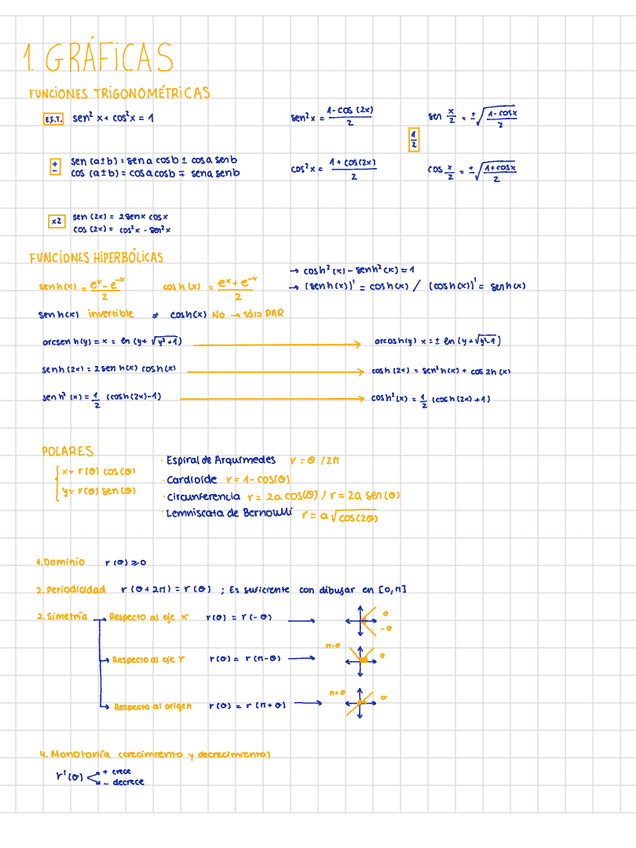 1. GRÁFICAS
FUNCIONES TRIGONOMÉTRICAS
F.S.T. sen² x + cos² x = 1
sen² x = 1 - cos (2x) / 2
sen x/2 = ± √(1 - cos x / 2)
1/2
+
-
sen (a ± b) = sen a cos b ± cos a sen b
cos (a ± b) = cos a cos b ∓ sen a sen b
cos² x = 1 + cos(2x) / 2
cos x/2 = ± √(1 + cos x / 2)
x2
sen (2x) = 2 sen x cos x
cos (2x) = cos² x - sen² x
FUNCIONES HIPERBÓLICAS
senh(x) = eˣ - e⁻ˣ / 2
cosh(x) = eˣ + e⁻ˣ / 2
→ cosh² (x) - senh² (x) = 1
→ (senh(x))' = cosh(x) / (cosh(x))' = senh(x)
senh(x) invertible ≠ cosh(x) NO → sólo PAR
arcsenh(y) = x = ln (y + √(y² + 1)) → arcosh(y) x = ± ln (y + √(y² - 1))
senh (2x) = 2 senh(x) cosh(x) → cosh (2x) = sen² h(x) + cos 2h (x)
senh² (x) = 1/2 (cosh(2x) - 1) → cosh² (x) = 1/2 (cosh (2x) + 1)
POLARES
x = r(θ) cos(θ)
y = r(θ) sen(θ)
· Espiral de Arquímedes r = θ / 2π
· Cardioide r = 1 - cos(θ)
· Circunferencia r = 2a cos(θ) / r = 2a sen(θ)
· Lemniscata de Bernoulli r = a √cos(2θ)
1. Dominio r(θ) ≥ 0
2. Periodicidad r(θ + 2π) = r(θ) ; Es suficiente con dibujar en [0, π]
2. Simetría → Respecto al eje X r(θ) = r(-θ) → θ
-θ
→ Respecto al eje Y r(θ) = r(π-θ) → π-θ θ
→ Respecto al origen r(θ) = r(π+θ) → π+θ θ
4. Monotonía (crecimiento y decrecimiento)
r'(θ) + crece
- decrece